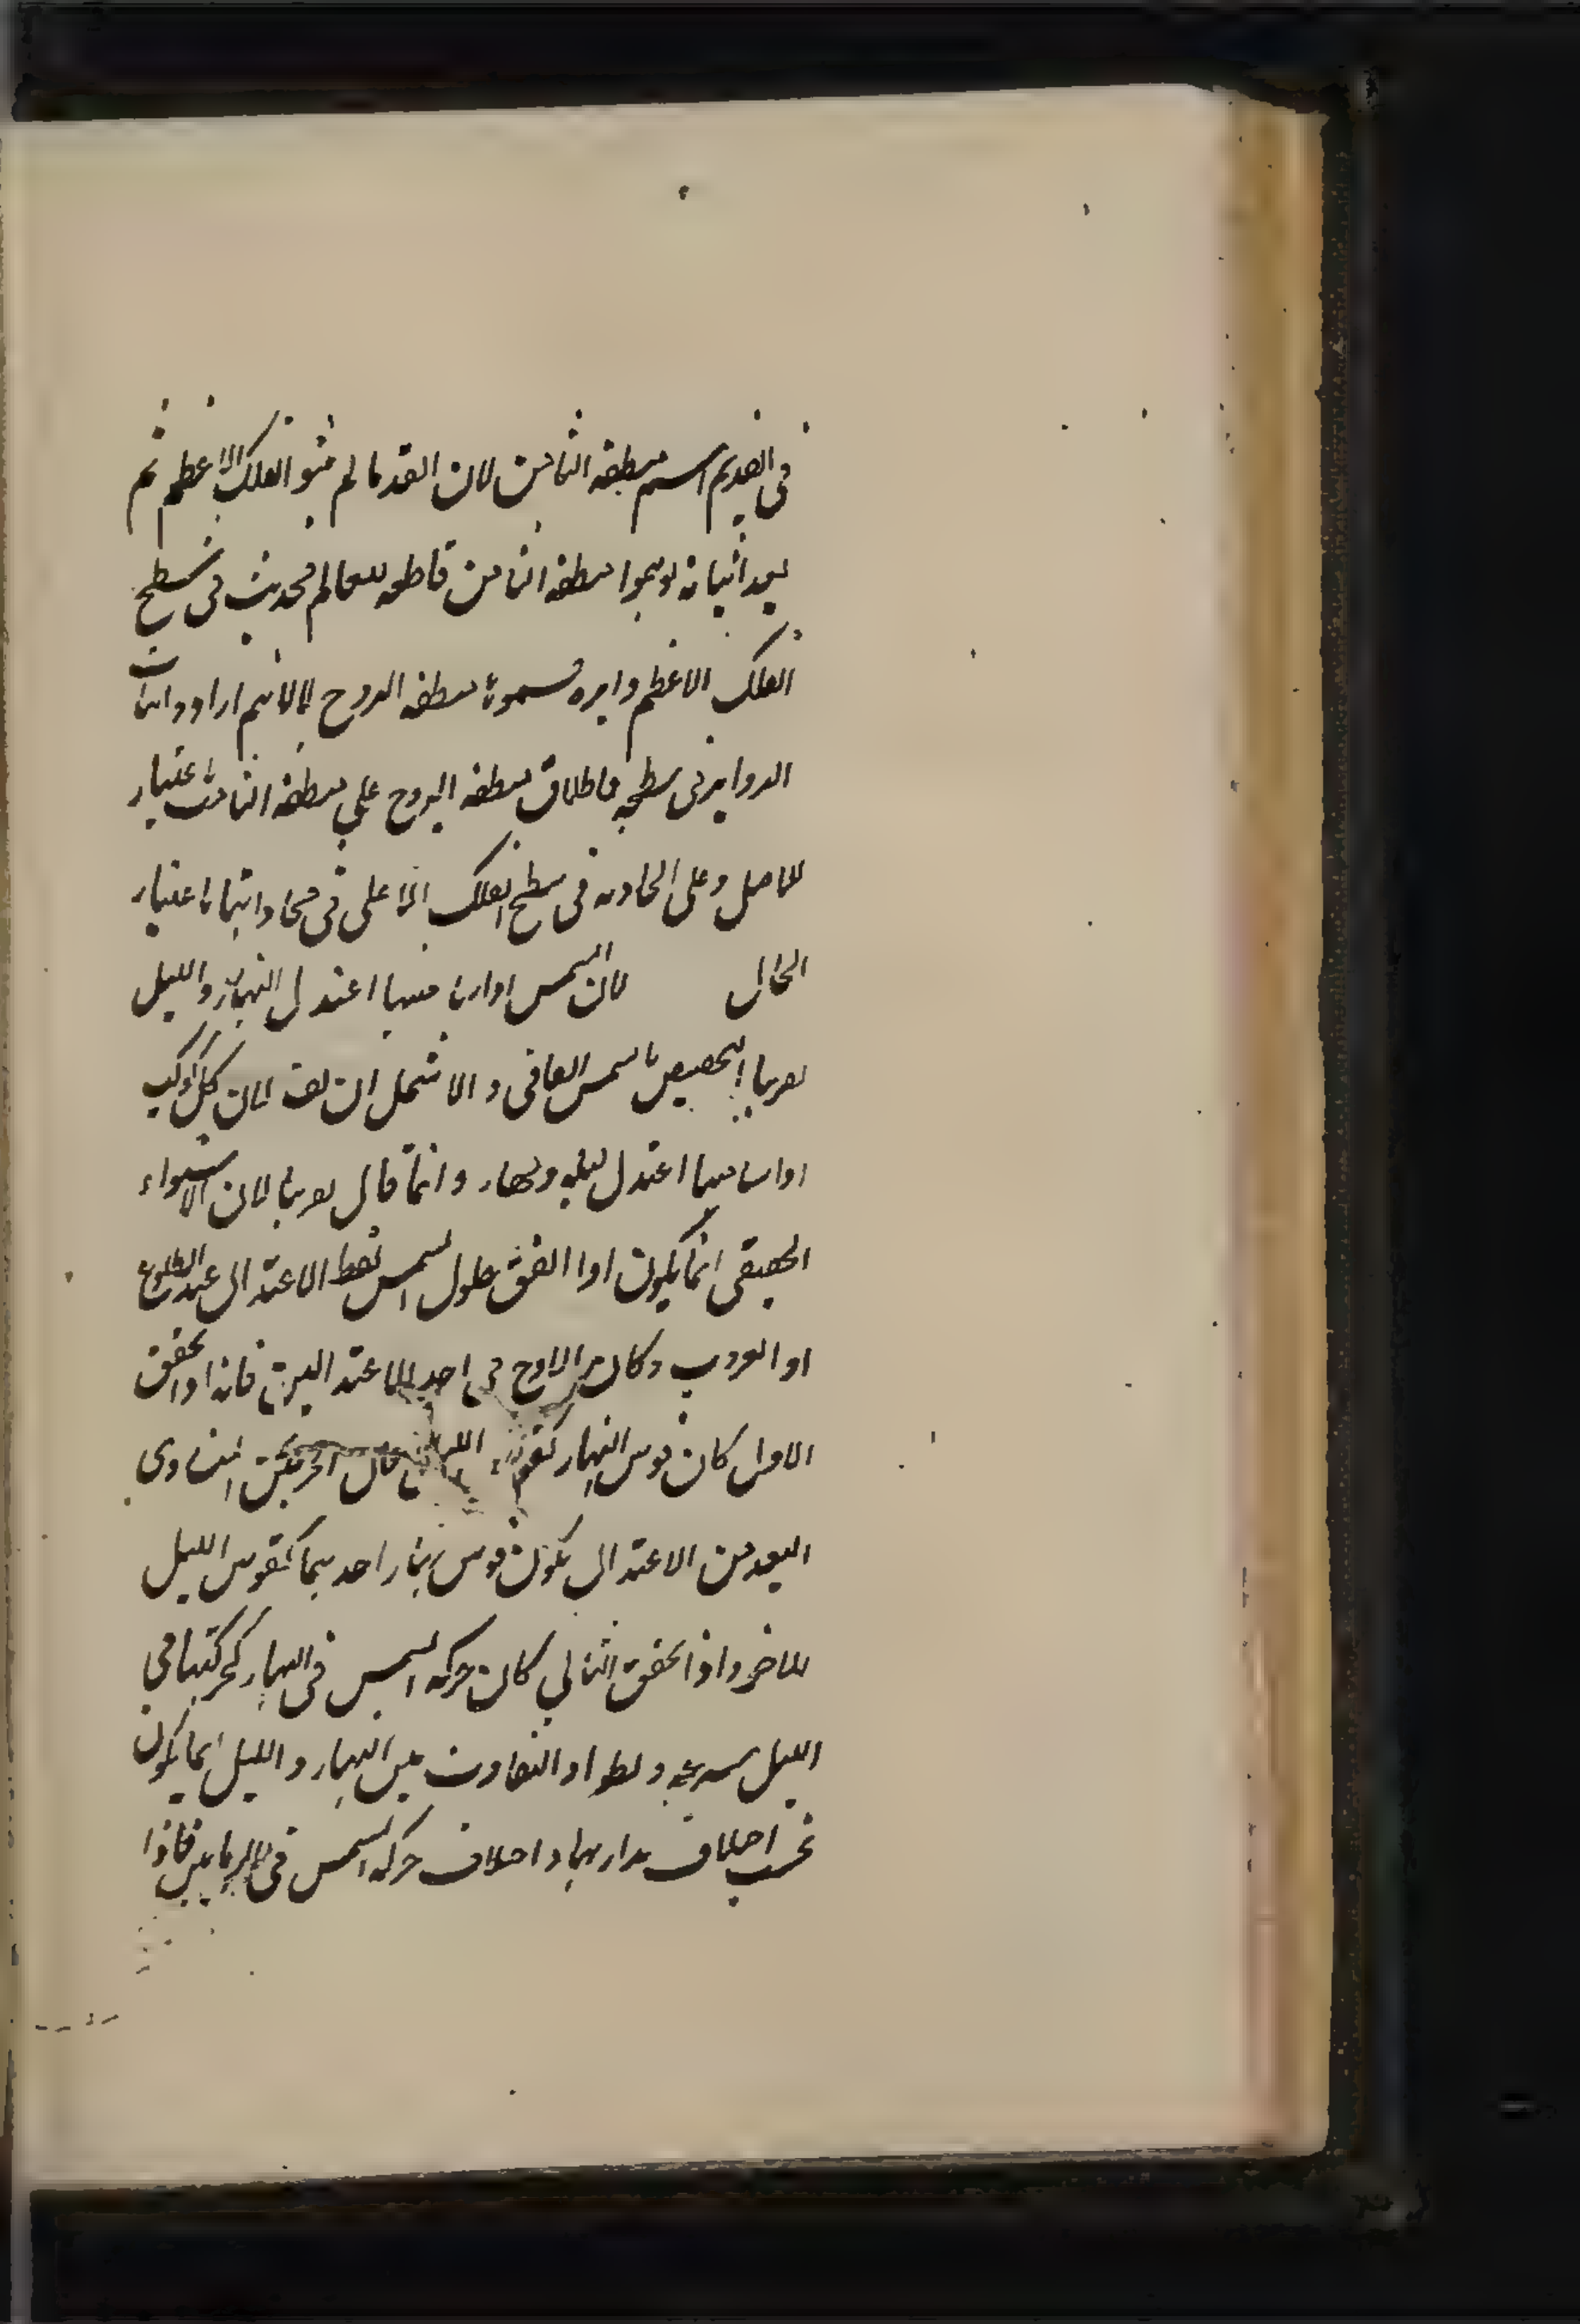 فى القديم اسم منطقة الثامن لان القدما لم يثبتوا الفلك الاعظم ثم
بعد اثباته توهموا منطقة الثامن قاطعة للعالم فحدثت فى سطح
الفلك الاعظم دايرة سموها منطقة البروج لانهم ارادوا اثبات
الدواير فى سطحه فاطلاق منطقة البروج على منطقة الثامن باعتبار
الاصل وعلى الحادثة فى سطح الفلك الاعلى فى محاذاتها باعتبار
الحال لان الشمس اذا ... اعتدل النهار والليل
تقريبا التخصيص بالشمس اتفاقى والاشمل ان يقال لان كل كوكب
اذا ... اعتدل ليله ونهاره وانما قال تقريبا لان الاستواء
الحقيقى انما يكون اذا اتفق حلول الشمس نقطة الاعتدال عند الطلوع
او الغروب وكان الاوج فى احد الاعتدالين فانه اذا تحقق
الاول كان قوس النهار كقوس الليل ...
البعد من الاعتدال يكون قوس نهار احديهما كقوس الليل
للاخر واذا تحقق الثانى كان حركة الشمس فى النهار كحركتها فى
الليل سرعة وبطوا والتفاوت بين النهار والليل انما يكون
بحسب اختلاف مداريهما واختلاف حركة الشمس فى الزمانين فاذا